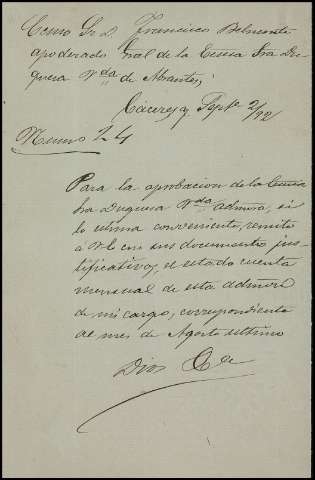 Excmo Sr D. Francisco Belmonte
apoderado Gral de la Excma Sra Du-
quesa Vda de Abrantes,
Cáceres y Septe 2/92
Numro 24
Para la aprobacion de la Excma
Sra Duquesa Vda admora, si
lo estima conveniente, remito
á V.E. con sus documentos jus-
tificativos, el estado cuenta
mensual de esta admon
de mi cargo, correspondiente
al mes de Agosto ultimo
Dios